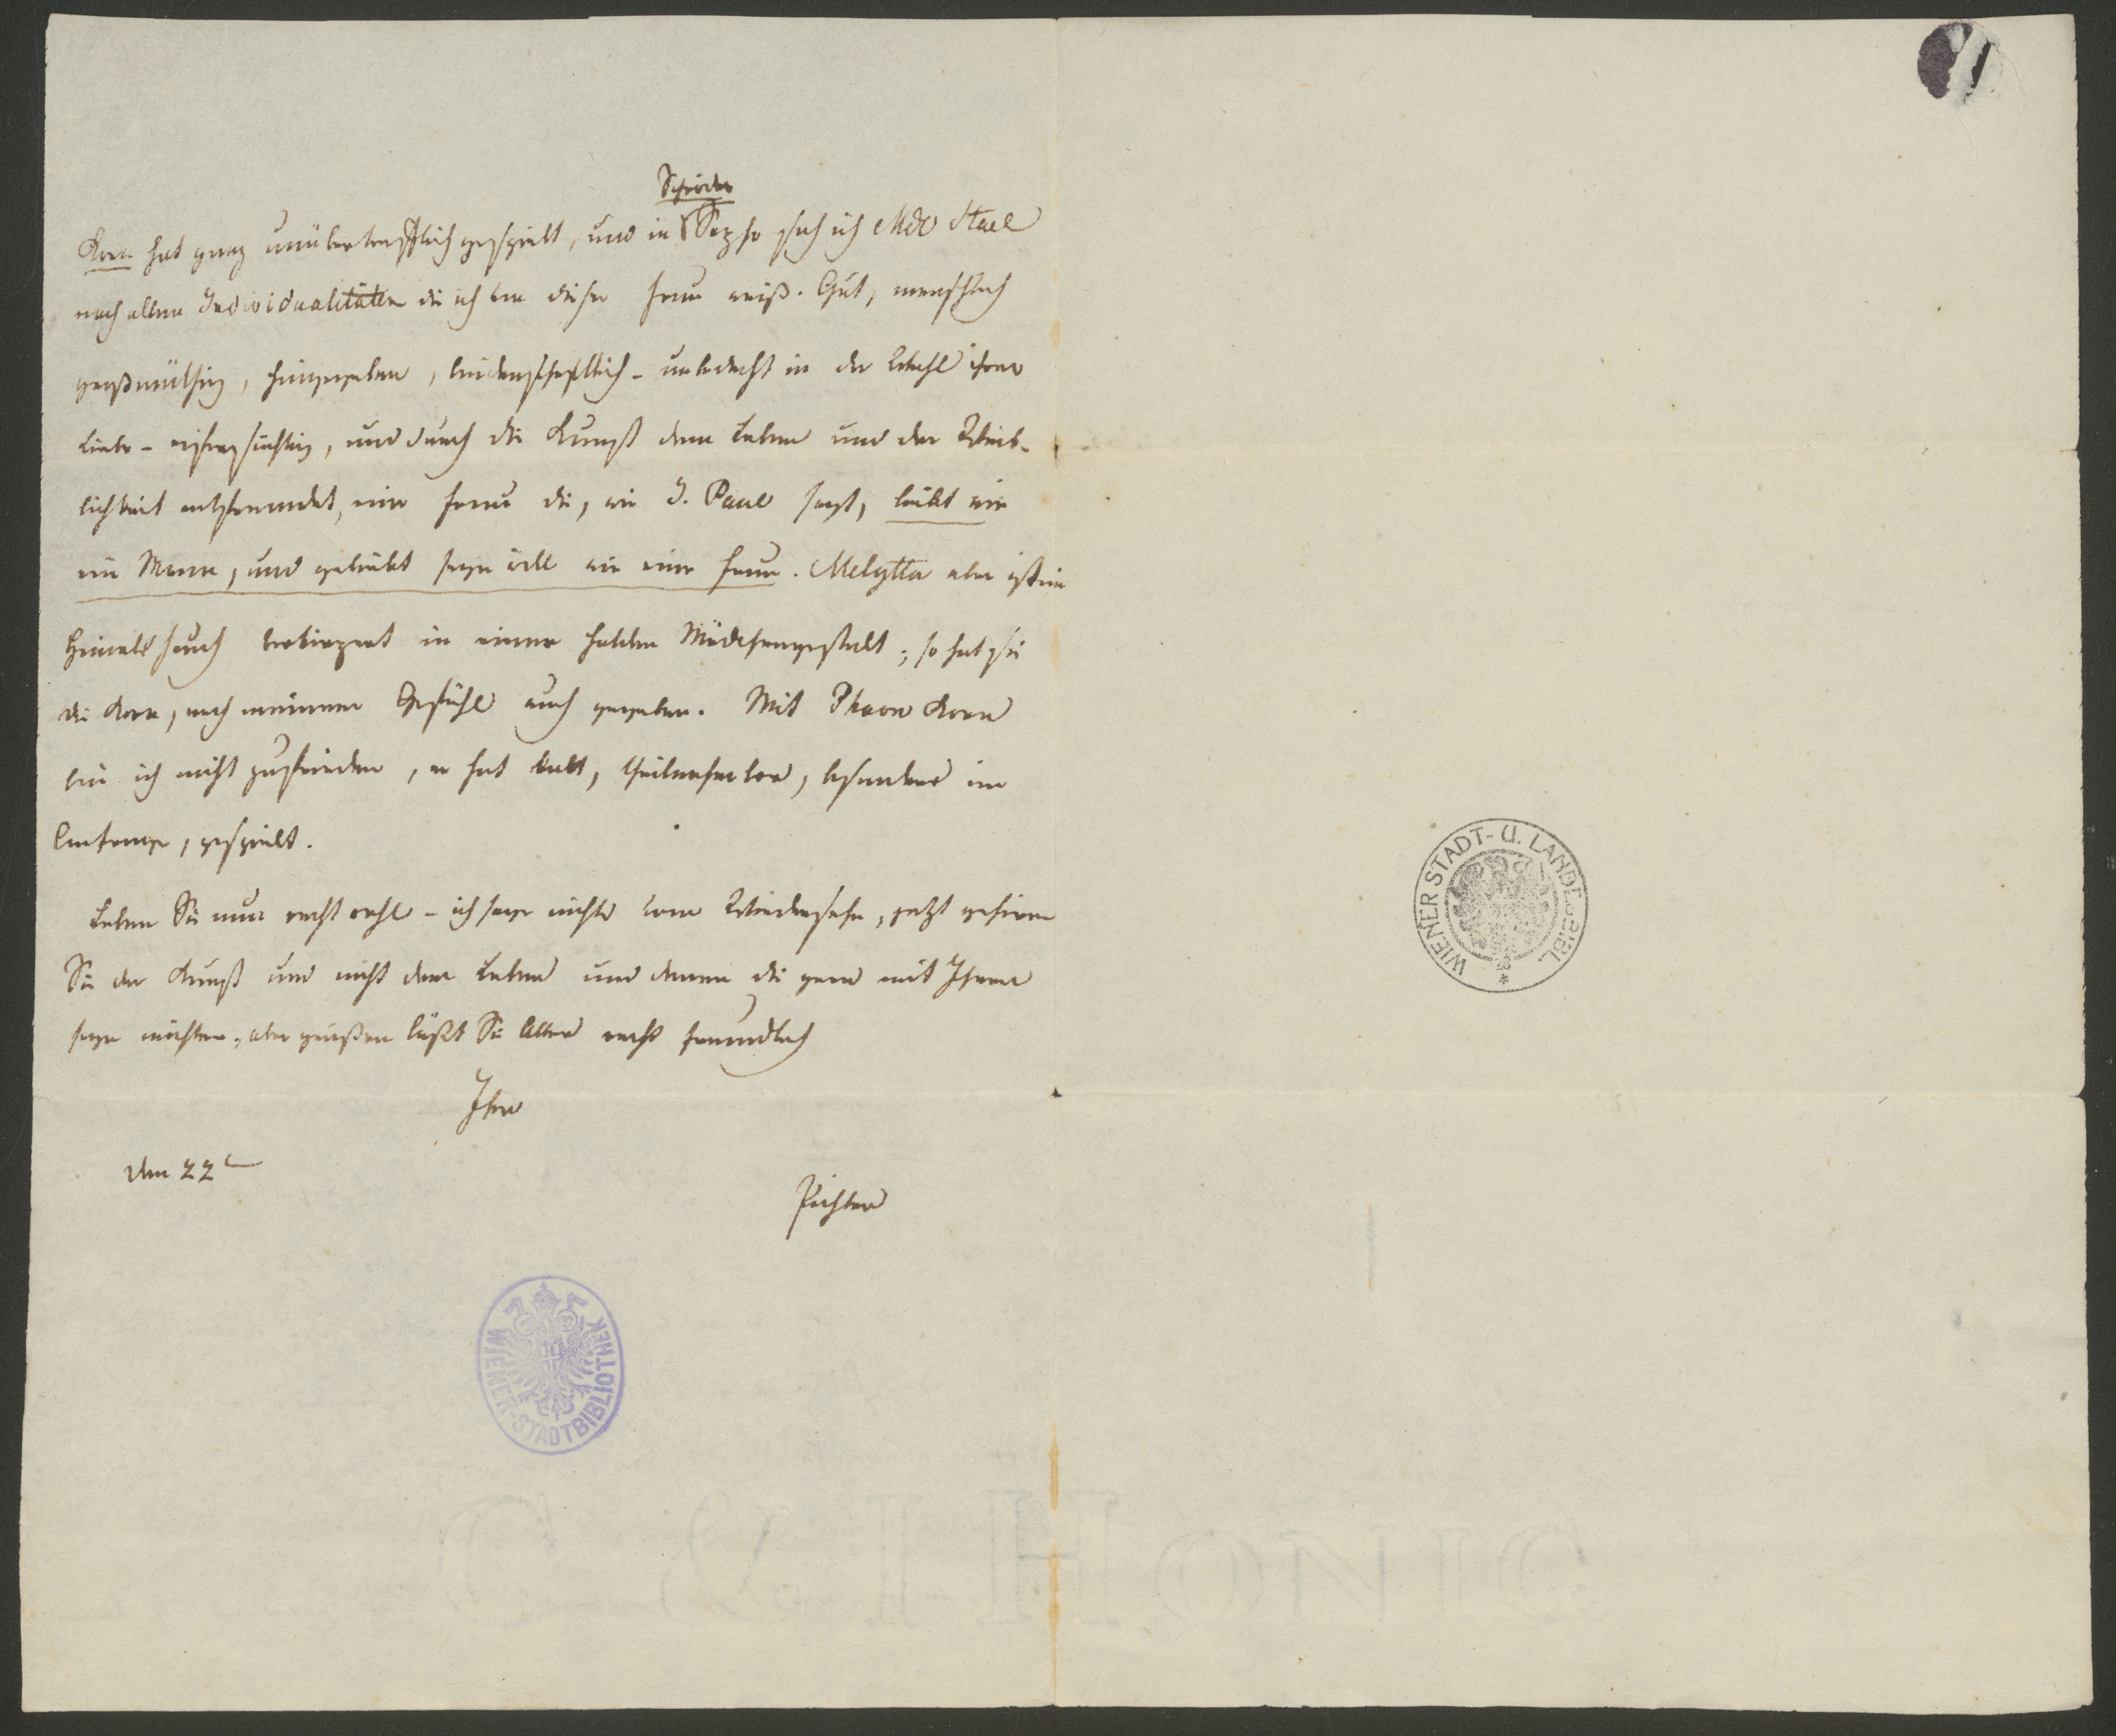 Schröder
Korn hat ganz unübertrefflich gespielt, und in Sapho sah ich Mde Stael
nach allen Individualitäten die ich von dieser Frau weiß. Gut, menschlich
großmüthig, hingegeben, leidenschaftlich - unbedacht in der Wahl ihrer
Liebe - eifersüchtig, und durch die Kunst dem Leben und der Weib-
lichkeit entfremdet, eine Frau die, wie J. Paul sagt, liebt wie
ein Mann, und geliebt seyn will wie eine Frau. Melytta aber ist ein
Himmelshauch verkörpert in einer holden Mädchengestalt, so hat sie
die Korn, nach meinem Gefühl auch gegeben. Mit Phaon Korn
bin ich nicht zufrieden, er hat kalt, theilnehmlos, besonders im
Anfange, gespielt.
Leben Sie nun recht wohl - ich sage nichts vom Wiedersehn, jetzt gehören
Sie der Kunst und nicht dem Leben und denen die gern mit Ihnen
seyn möchten, aber grüßen läßt Sie Alles recht freundlich
Ihre
den 22t
Pichler
WIENER STADT- U. LANDESBIBL.
WIENER-STADTBIBLIOTHEK